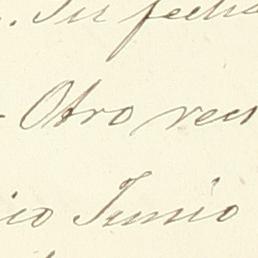 Su fecha
Otro reci
ico Junio